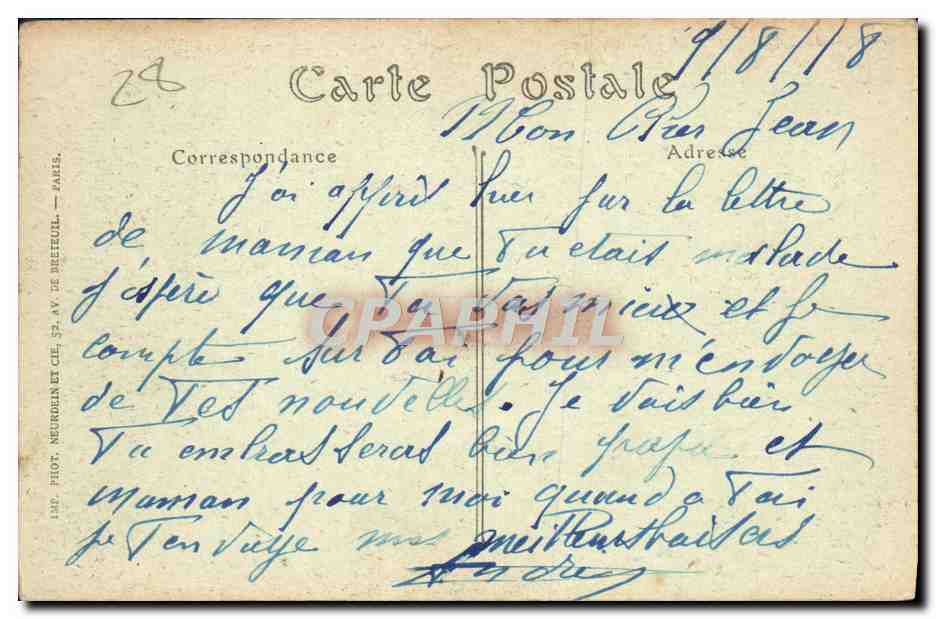 28
9/8/18
Carte Postale
Mon Cher Jean
Correspondance
Adresse
J'ai apprit hier sur la lettre
de maman que tu etais malade
j'espère que tu vas mieux et je
compte sur toi pour m'envoyer
de tes nouvelles. Je vais bien
tu embrasseras bien papa et
maman pour moi quand a toi
je t'envoye mes meilleurs baisers
André
IMP. PHOT. NEURDEIN ET CIE, 52, AV. DE BRETEUIL. — PARIS.
CPAPHIL